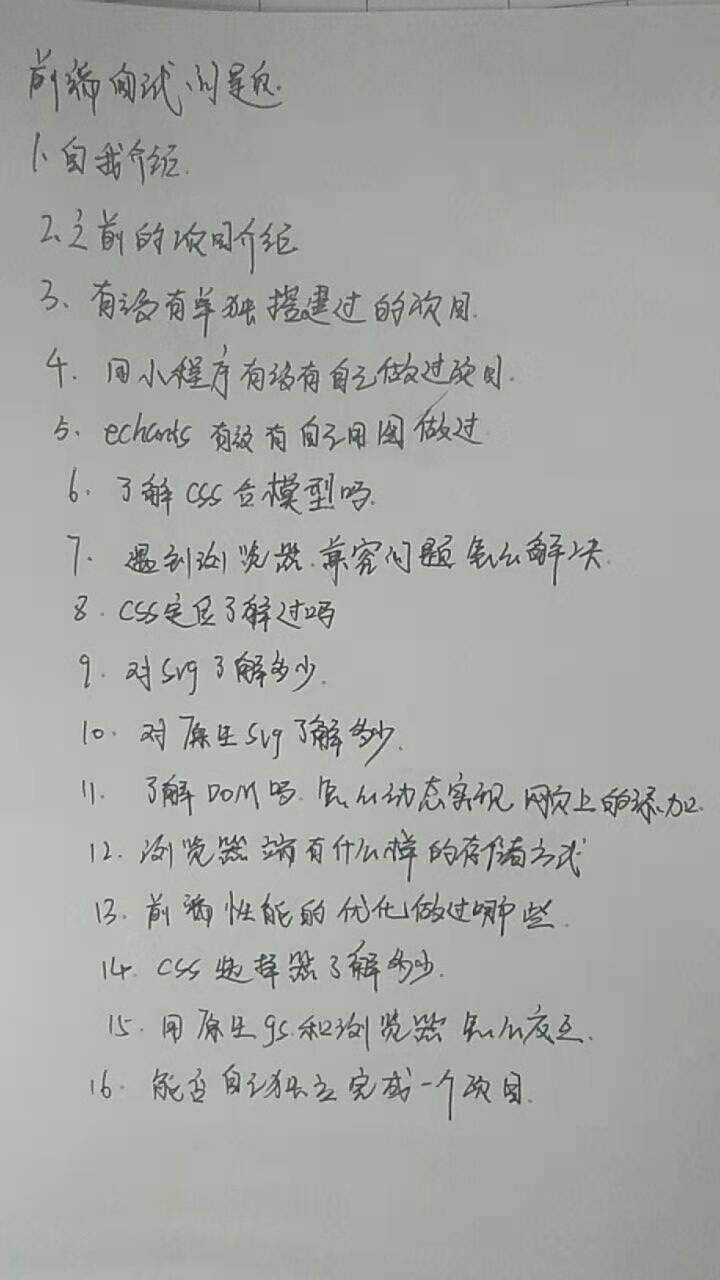 前端面试问题
1、自我介绍.
2、之前的项目介绍
3、有没有单独搭建过的项目.
4. 用小程序有没有自己做过项目.
5. echarts 有没有自己用图做过
6. 了解 css 合模型吗.
7. 遇到浏览器.兼容问题怎么解决.
8. css定位了解过吗
9. 对 svg 了解多少.
10. 对原生 svg 了解多少.
11. 了解 DOM 吗. 怎么动态实现 网页上的添加.
12. 浏览器端有什么样的存储方式
13. 前端性能的优化做过哪些.
14. css 选择器了解多少.
15. 用原生 gs 和浏览器 怎么交互.
16. 能否自己独立完成一个项目.